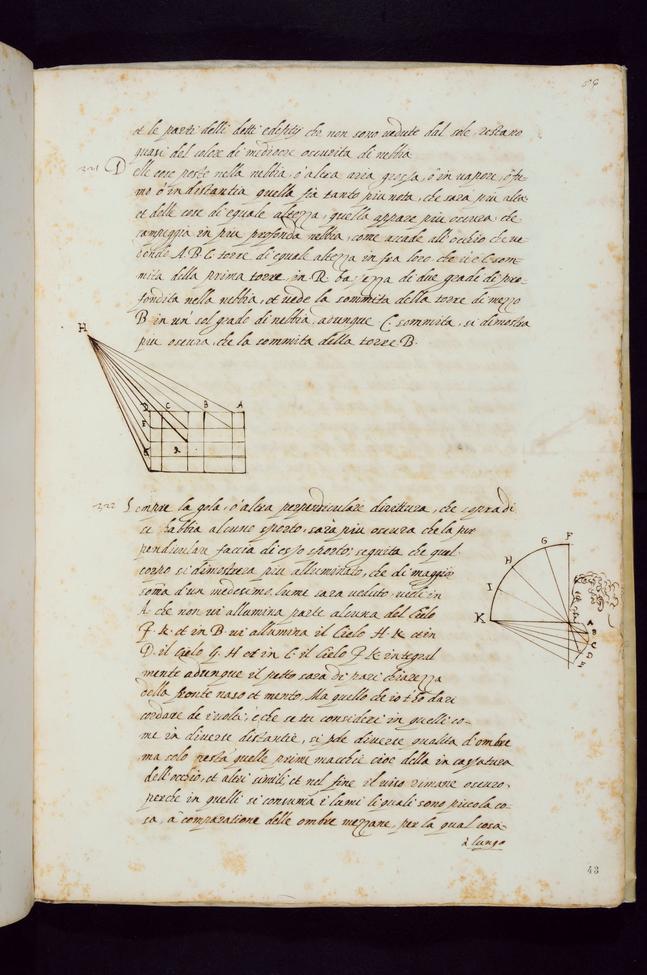 et le parti delli detti edifitij che non sono vedute dal sole, restano
quasi del colore di mediocre oscurita di nebbia
321 Delle cose poste nella nebbia, ò altra aria grossa, ò in vapore, ò fu
mo ò in distantia quella fia tanto piu nota, che sara piu alta
et delle cose di equale altezza, quella appare piu oscura, che
campeggia in piu profonda nebbia, come accade all'occhio che ve
dendo A. B. C. torre di equale altezza infra loro che
mita della prima torre, in R. di due gradi di pro
fondita nella nebbia, et vede la sommita della torre di mezzo
B in un' sol grado di nebbia, adunque C. sommita, si dimostra
piu oscura, che la sommita della torre B.
H
D C B A
E
R
S
322 Sempre la gola, ò altra perpendiculare dirittura, che sopra di
se habbia alcuno sporto, sarà piu oscura che la per
pendiculare faccia di esso sporto; seguita che quel
corpo si dimostrera piu alluminato, che di maggior
somma d'un medesimo lume sara veduto, vedi in
A. che non vi allumina parte alcuna del Cielo
F. K. et in B. vi allumina il Cielo H. K. et in
D. il Cielo G. H et in C. il Cielo F. K. integral
mente adunque il petto sara di pari chiarezza
della fronte naso et mento. Ma quello che io t'hò da ri
cordare de i volti, è che se tu consideri in quelli co-
me in diverse distantie, si pde diverse qualita d'ombre
ma solo resta quelle prime macchie cioe della incassatura
dell'occhio, et altri simili, et nel fine il viso rimane oscuro,
perche in quelli si consuma i lumi li quali sono piccola co-
sa, a comparatione delle ombre mezzane, per la qual cosa
à lungo
F
G
H
I
K
48